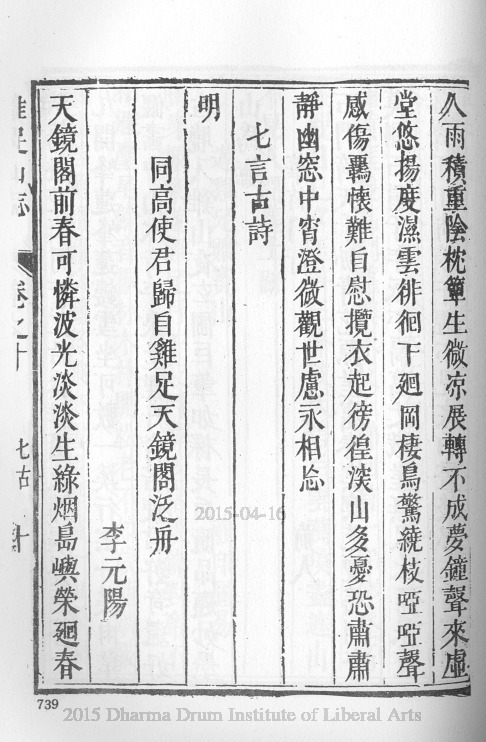 久雨積重陰枕簟生微凉展轉不成夢鐘聲來虛
堂悠揚度濕雲徘徊下廻岡棲鳥驚繞枝啞啞聲
感傷羈懷難自慰攬衣起徬徨淡山多憂恐肅肅
靜幽窓中宵澄微觀世慮永相忘
七言古詩
明
同高使君歸自雞足天鏡閣泛舟
李元陽
天鏡閣前春可憐波光淡淡生綠烟島嶼縈廻春
雞足山志 卷之十 七古 十
739
2015-04-16
2015 Dharma Drum Institute of Liberal Arts